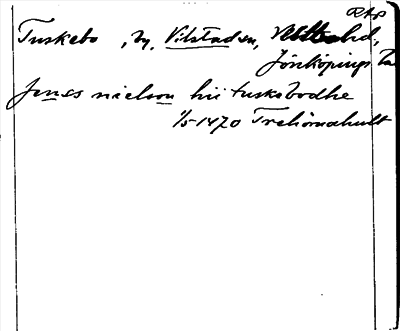 RAp
Tuskebo, by, Vilstad sn, Västbo hd,
Jönköpings län
Jenss nielson hii tuskobodhe
1/5 1470 Trehörnahult